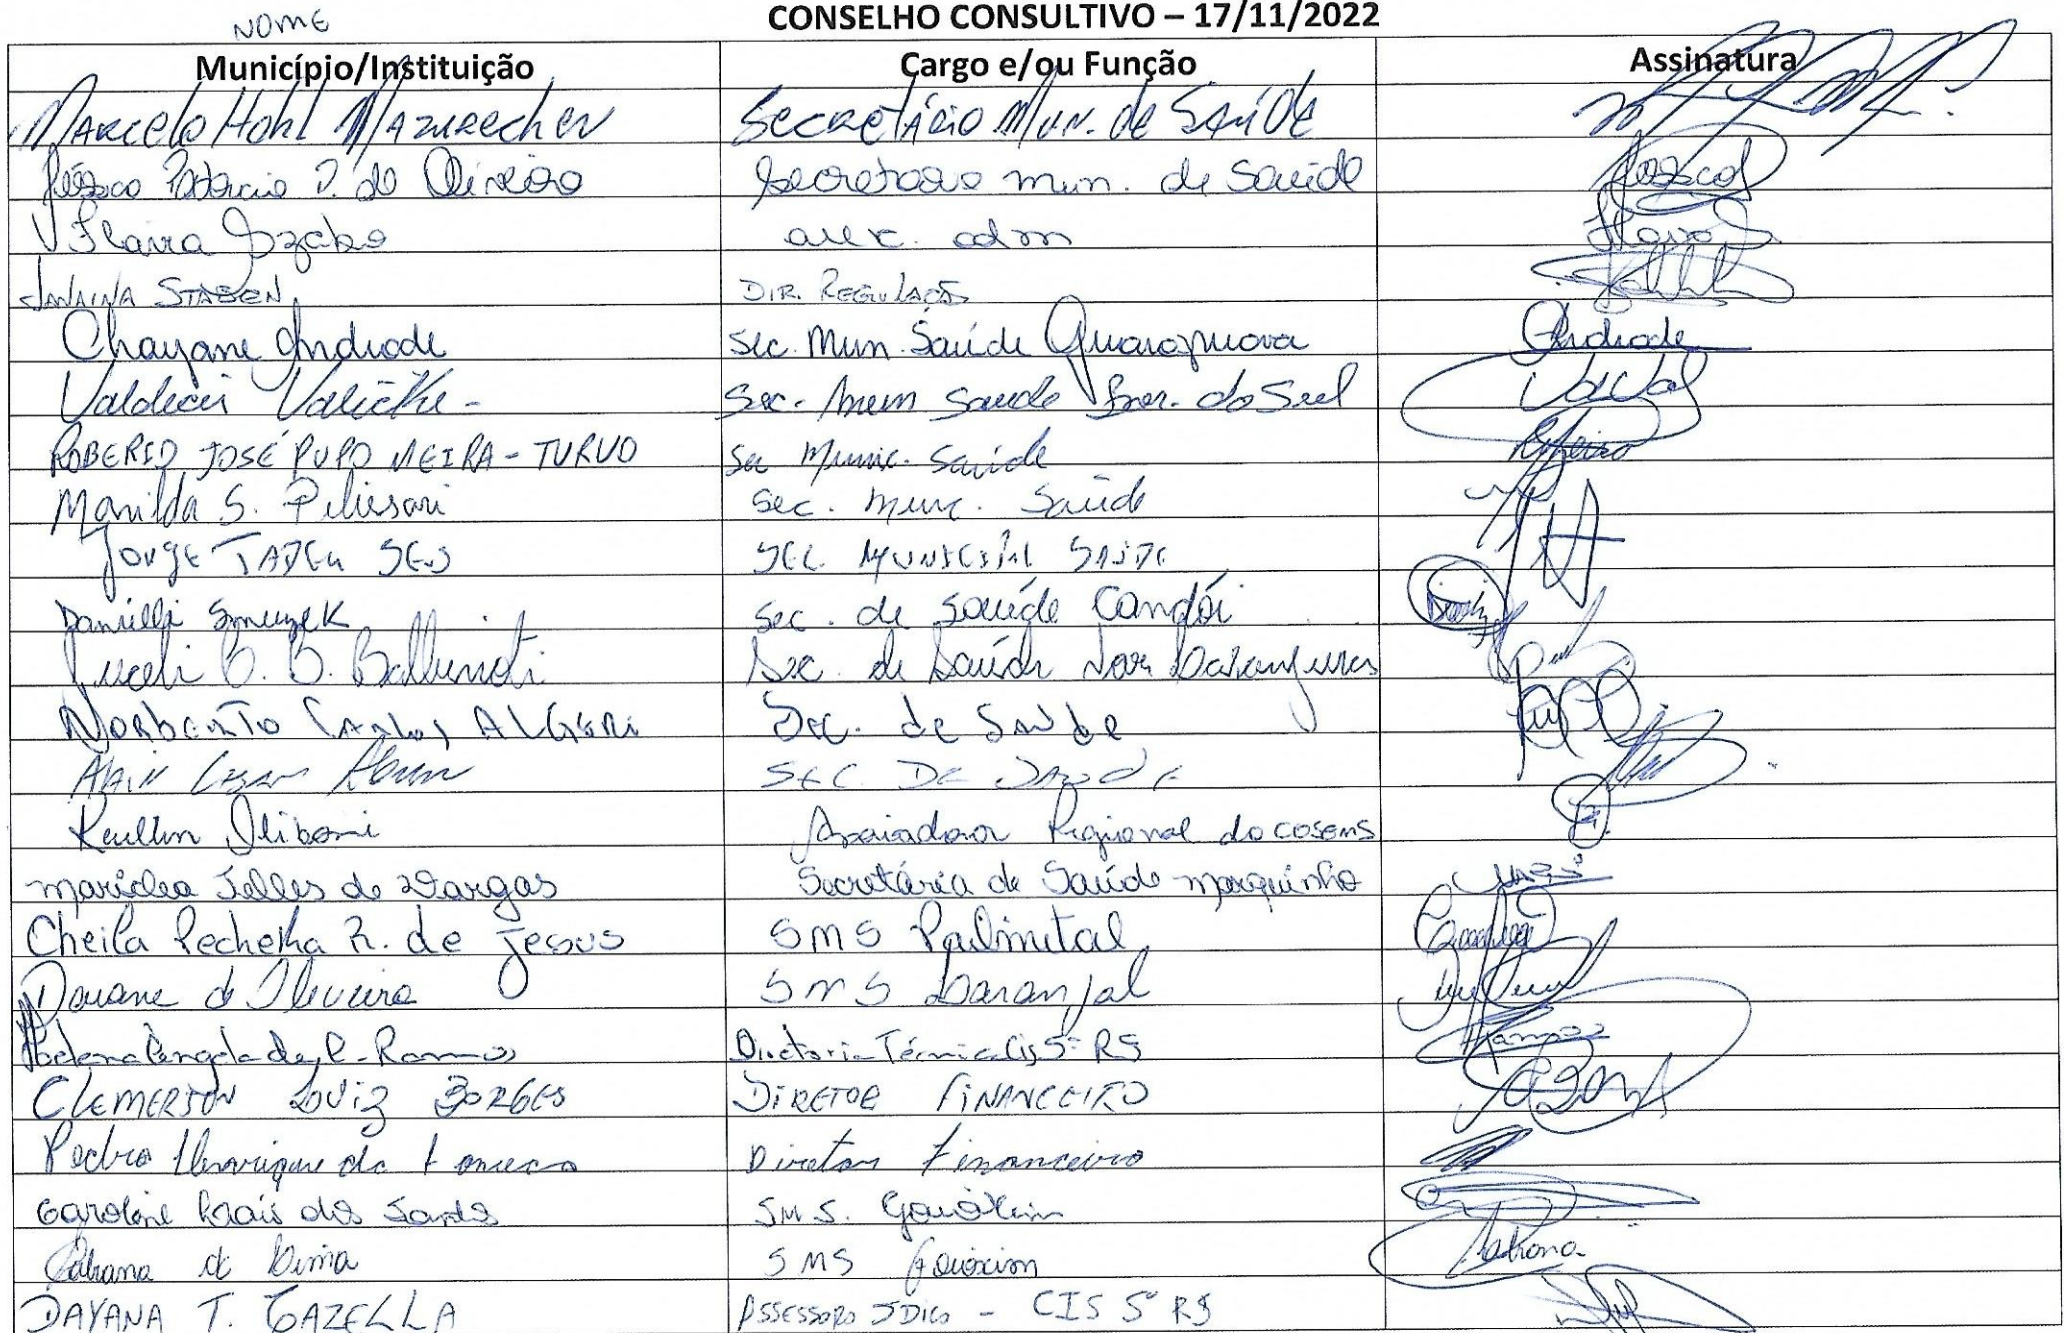 NOME
CONSELHO CONSULTIVO – 17/11/2022
Município/Instituição Cargo e/ou Função Assinatura
Marcelo Hohl Mazurechen Secretário Mun. de Saúde
Patricia de Oliveira Secretaria mun. de Saúde
Flavia Szabo aux. adm
JANAINA STASEN DIR. REGULAÇÃO
Chayane Andrade Sec. Mun. Saúde Guarapuava Andrade
Valdecir Valicki - Sec. Mun Saude do Sul
ROBERTO JOSÉ PUPO MEIRA - TURVO Sec Munic. Saúde
Marilda S. Sec. Munc. Saúde
Jorge TADEU SEC MUNICIPAL SAÚDE
Danielli Smuzek Sec. de Saúde Candói
B. B. Sec. de Saúde Nova Laranjeiras
NORBERTO Carlos ALGERI Sec. de Saúde
SEC. DE SAUDE
Keullin Oliboni Apoiadora Regional do COSEMS
Mariclea Telles de Vargas Secretária de Saúde Marquinho
Cheila Pecheka R. de Jesus SMS Palmital
Daiane de Oliveira SMS Laranjal
Ramos Diretoria Técnica CIS 5ª RS Ramos
CLEMERSON LUIZ BORGES DIRETOR FINANCEIRO
Pedro Henrique da Fonseca Diretor Financeiro
Caroline Laais dos Santos S.M.S. Goioxim
de Lima SMS Goioxim
DAYANA T. GAZELLA ASSESSORA JDICO - CIS 5ª RS